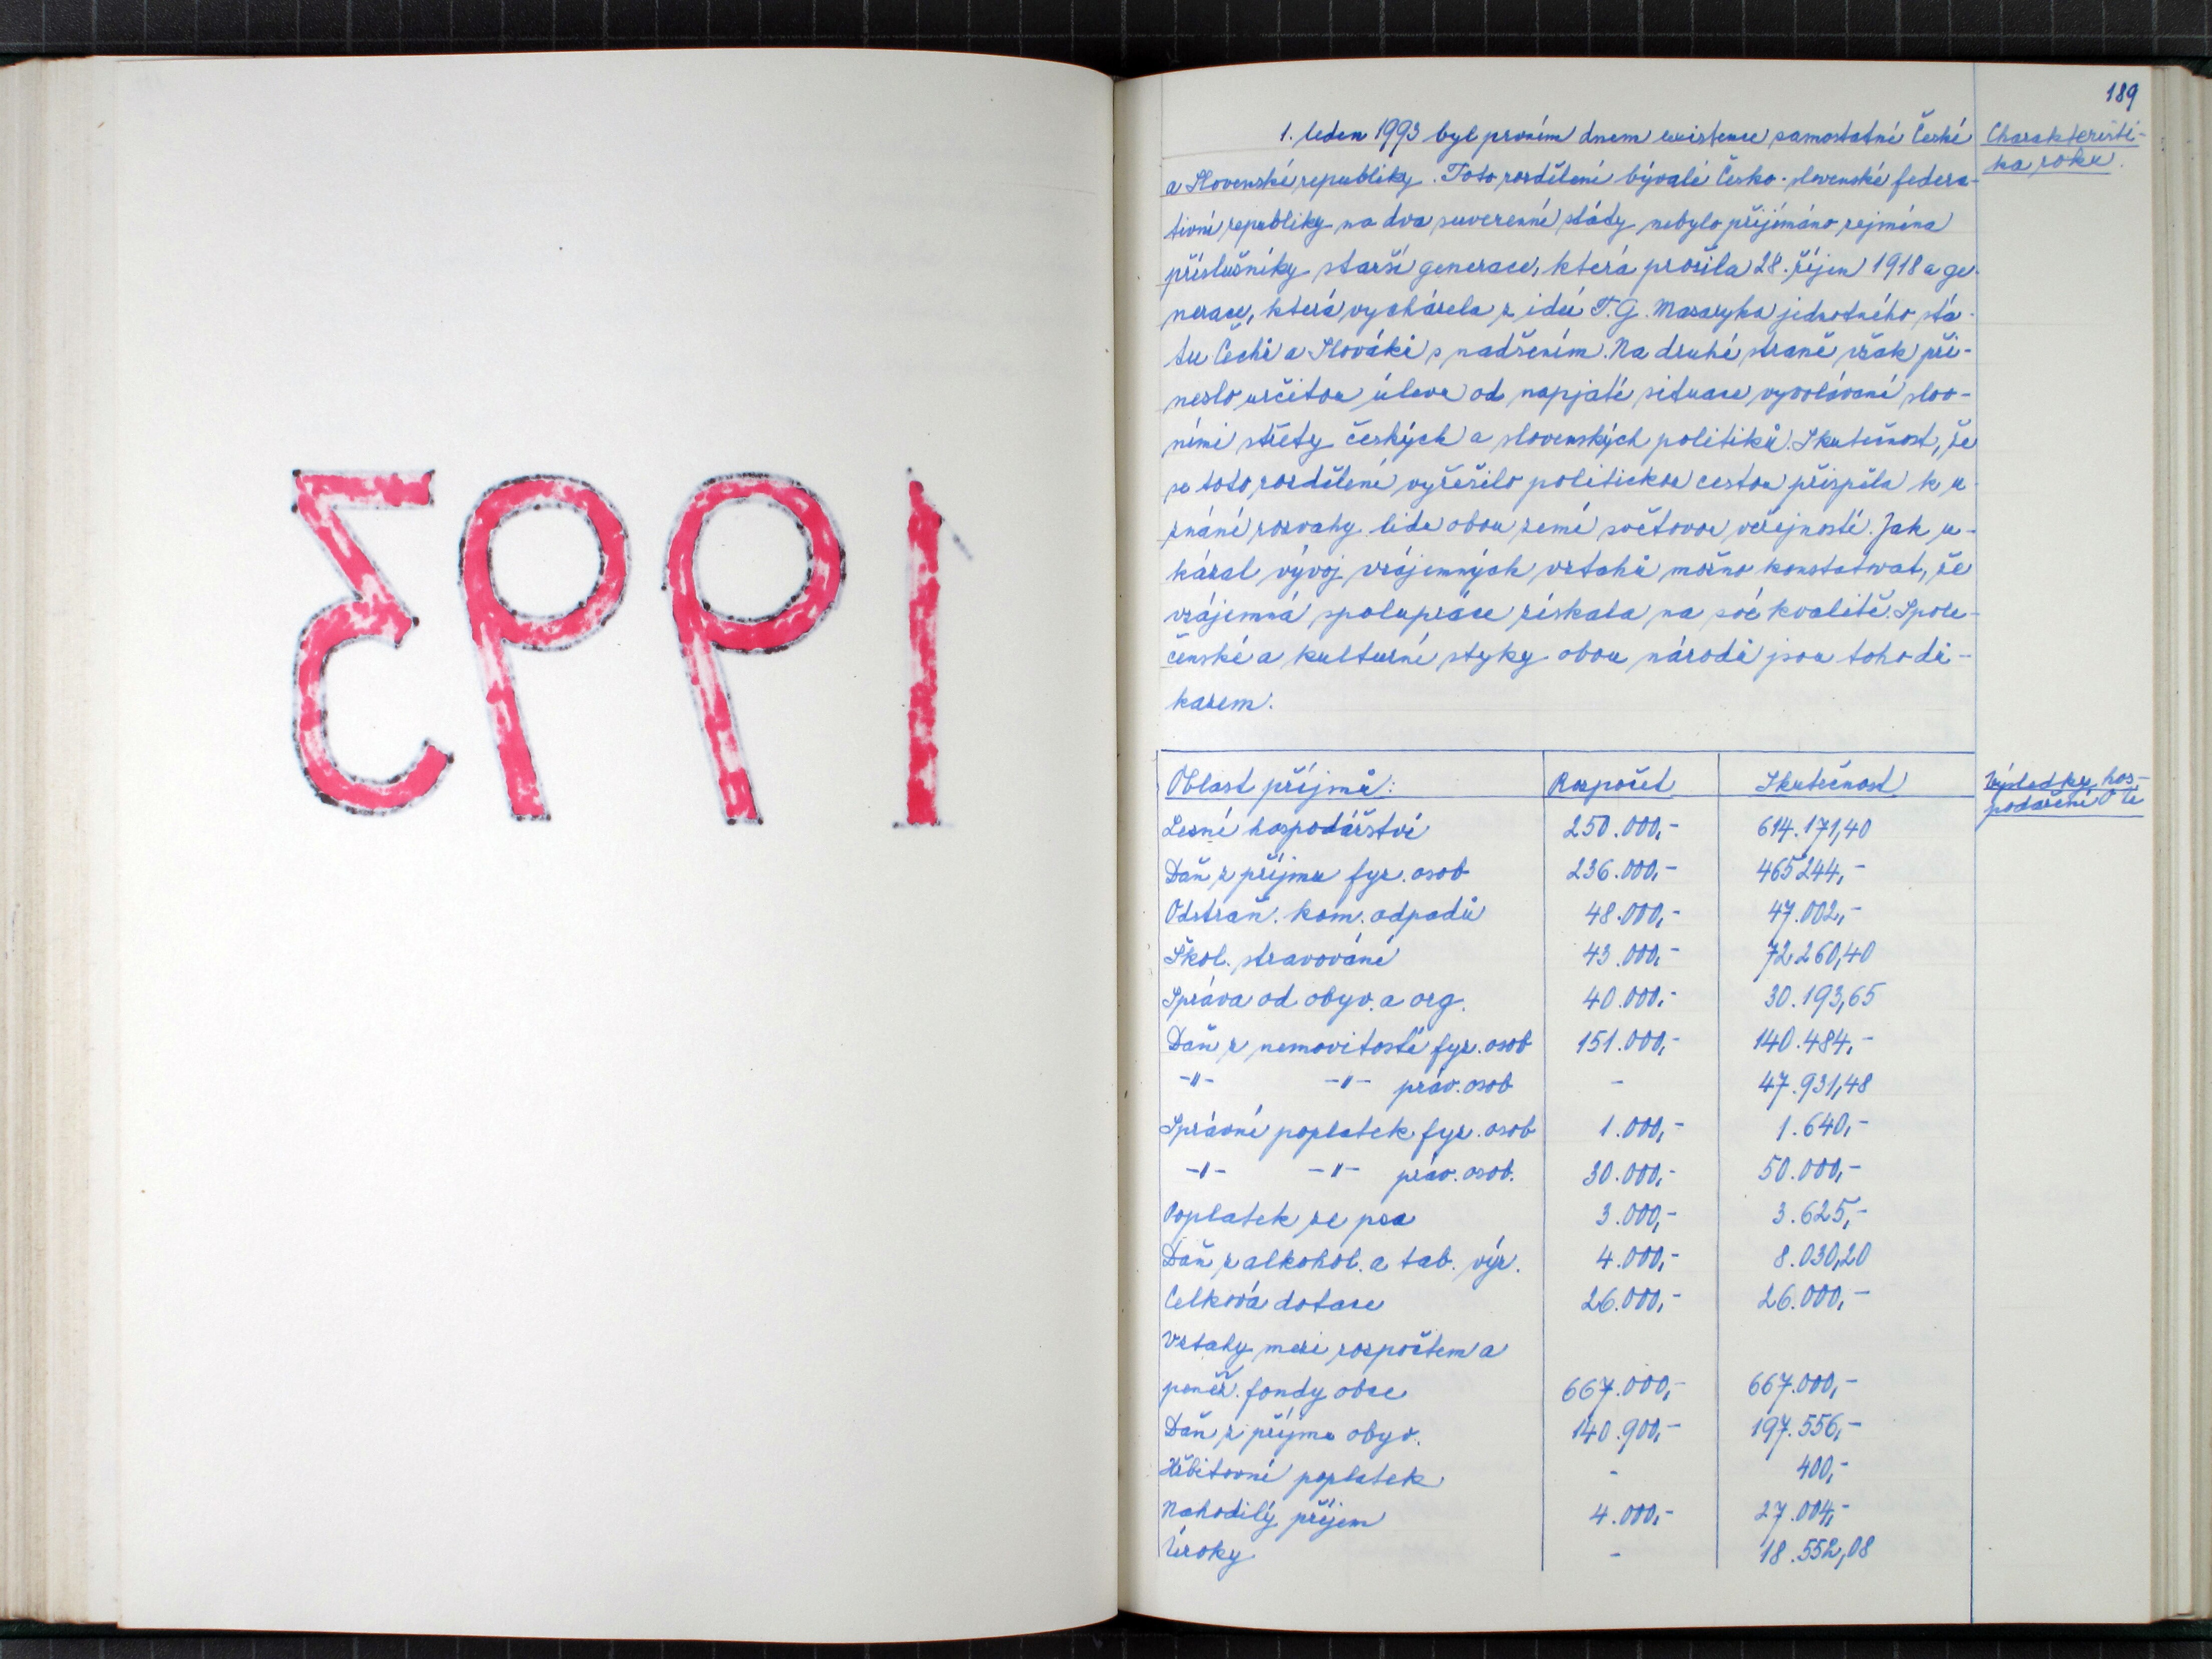 1993
189
1. leden 1993 byl prvním dnem existence samostatné České
a Slovenské republiky. Toto rozdělení bývalé Česko-slovenské federa-
tivní republiky na dva suverenní státy nebylo přijímáno zejména
příslušníky starší generace, která prožila 28. říjen 1918 a ge-
nerace, která vycházela z ideí T. G. Masaryka jednotného stá-
tu Čechů a Slováků s nadšením. Na druhé straně však při-
neslo určitou úlevu od napjaté situace vyvolávané slov-
ními střety českých a slovenských politiků. Skutečnost, že
se toto rozdělení vyřešilo politickou cestou přispěla k u-
znání rozvahy lidu obou zemí světovou veřejností. Jak u-
kázal vývoj vzájemných vztahů možno konstatovat, že
vzájemná spolupráce získala na své kvalitě. Spole-
čenské a kulturní styky obou národů jsou toho dů-
kazem.
Charakteristi-
ka roku.
Oblast příjmů: Rozpočet Skutečnost
Výsledky hos-
podaření OÚ
Lesní hospodářství 250.000,- 614.171,40
Daň z příjmu fyz. osob 236.000,- 465244,-
Odstraň. kom. odpadů 48.000,- 47.002,-
Škol. stravování 43.000,- 72260,40
Správa od obyv. a org. 40.000,- 30.193,65
Daň z nemovitostí fyz. osob 151.000,- 140.484,-
-"- -"- práv. osob - 47.931,48
Správní poplatek fyz. osob 1.000,- 1.640,-
-"- -"- práv. osob. 30.000,- 50.000,-
Poplatek ze psa 3.000,- 3.625,-
Daň z alkohol. a tab. výr. 4.000,- 8.030,20
Celková dotace 26.000,- 26.000,-
Vztahy mezi rozpočtem a
peněž. fondy obce 667.000,- 667.000,-
Daň z příjmu obyv. 140.900,- 197.556,-
Hřbitovní poplatek - 400,-
Nahodilý příjem 4.000,- 27.004,-
Úroky - 18.552,08